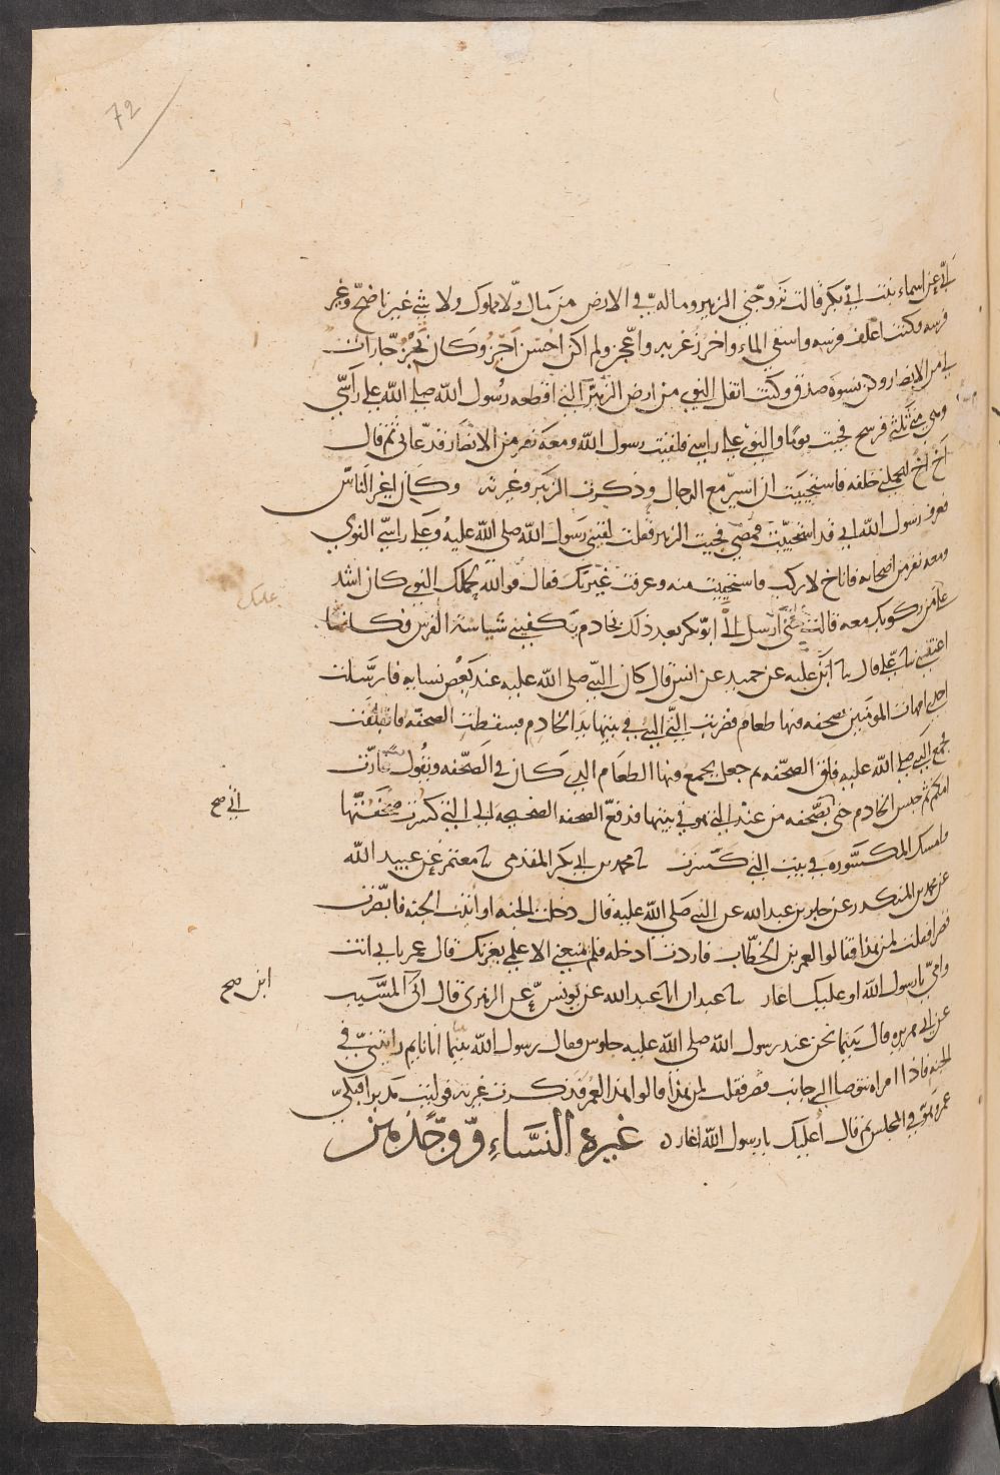 72
ابي عن اسماء بنت ابي بكر قالت تزوجني الزبير وماله في الارض من مال ولا مملوك ولا شي غير ناضح وغير
فرسه وكنت اعلف فرسه واسقي الماء واخرز غربه واعجن ولم اكن احسن اخبز وكان يخبز جارات
لي من الانصار وكن نسوة صدق وكنت انقل النوي من ارض الزبير التي اقطعه رسول الله صلى الله علي راسي
وهي مني ثلثي فرسخ فجيت يوما والنوي علي راسي فلقيت رسول الله ومعه نفر من الانصار فدعاني ثم قال
اخ اخ ليحملني خلفه فاستحييت ان اسير مع الرجال وذكرت الزبير وغيرته وكان اغير الناس
فعرف رسول الله اني قد استحييت فمضي فجيت الزبير فقلت لقيني رسول الله صلى الله عليه وعلي راسي النوي
ومعه نفر من اصحابه فاناخ لاركب فاستحييت منه وعرفت غيرتك فقال والله لحملك النوي كان اشد
عليك
علي من ركوبك معه قالت حتي ارسل الي ابو بكر بعد ذلك بخادم يكفيني سياسة الفرس فكانما
اعتقني نا علي قال نا ابن عليه عن حميد عن انس قال كان النبي صلى الله عليه عند بعض نسايه فارسلت
احدي امهات المومنين بصحفه فيها طعام فضربت التي النبي في بيتها يد الخادم فسقطت الصحفه فانفلقت
فجمع النبي صلى الله عليه فلق الصحفه ثم جعل يجمع فيها الطعام الذي كان في الصحفه ويقول غارت
امكم ثم حبس الخادم حتي بصحفه من عند التي هو في بيتها فدفع الصحفه الصحيحه الي التي كسرت صحفتها
اتي صح
وامسك المكسوره في بيت التي كسرت نا محمد بن ابي بكر المقدمي نا معتمر عن عبيد الله
عن محمد بن المنكدر عن جابر بن عبد الله عن النبي صلى الله عليه قال دخلت الجنه او اتيت الجنه فابصرت
قصرا فقلت لمن هذا فقالوا لعمر بن الخطاب فاردت ادخله فلم يمنعني الا علمي بغيرتك قال عمر بابي انت
وامي يا رسول الله او عليك اغار نا عبدان انا عبد الله عن يونس عن الزهري قال ابي المسيب
ابن صح
عن ابي هريره قال بينما نحن عند رسول الله صلى الله عليه جلوس فقال رسول الله بينما انا نايم رايتني في
الجنه فاذا امراه تتوضا الي جانب قصر فقلت لمن هذا قالوا هذا لعمر فذكرت غيرته فوليت مدبرا فبكي
عمر وهو في المجلس ثم قال أعليك يا رسول الله اغار غيره النساء ووجدهن